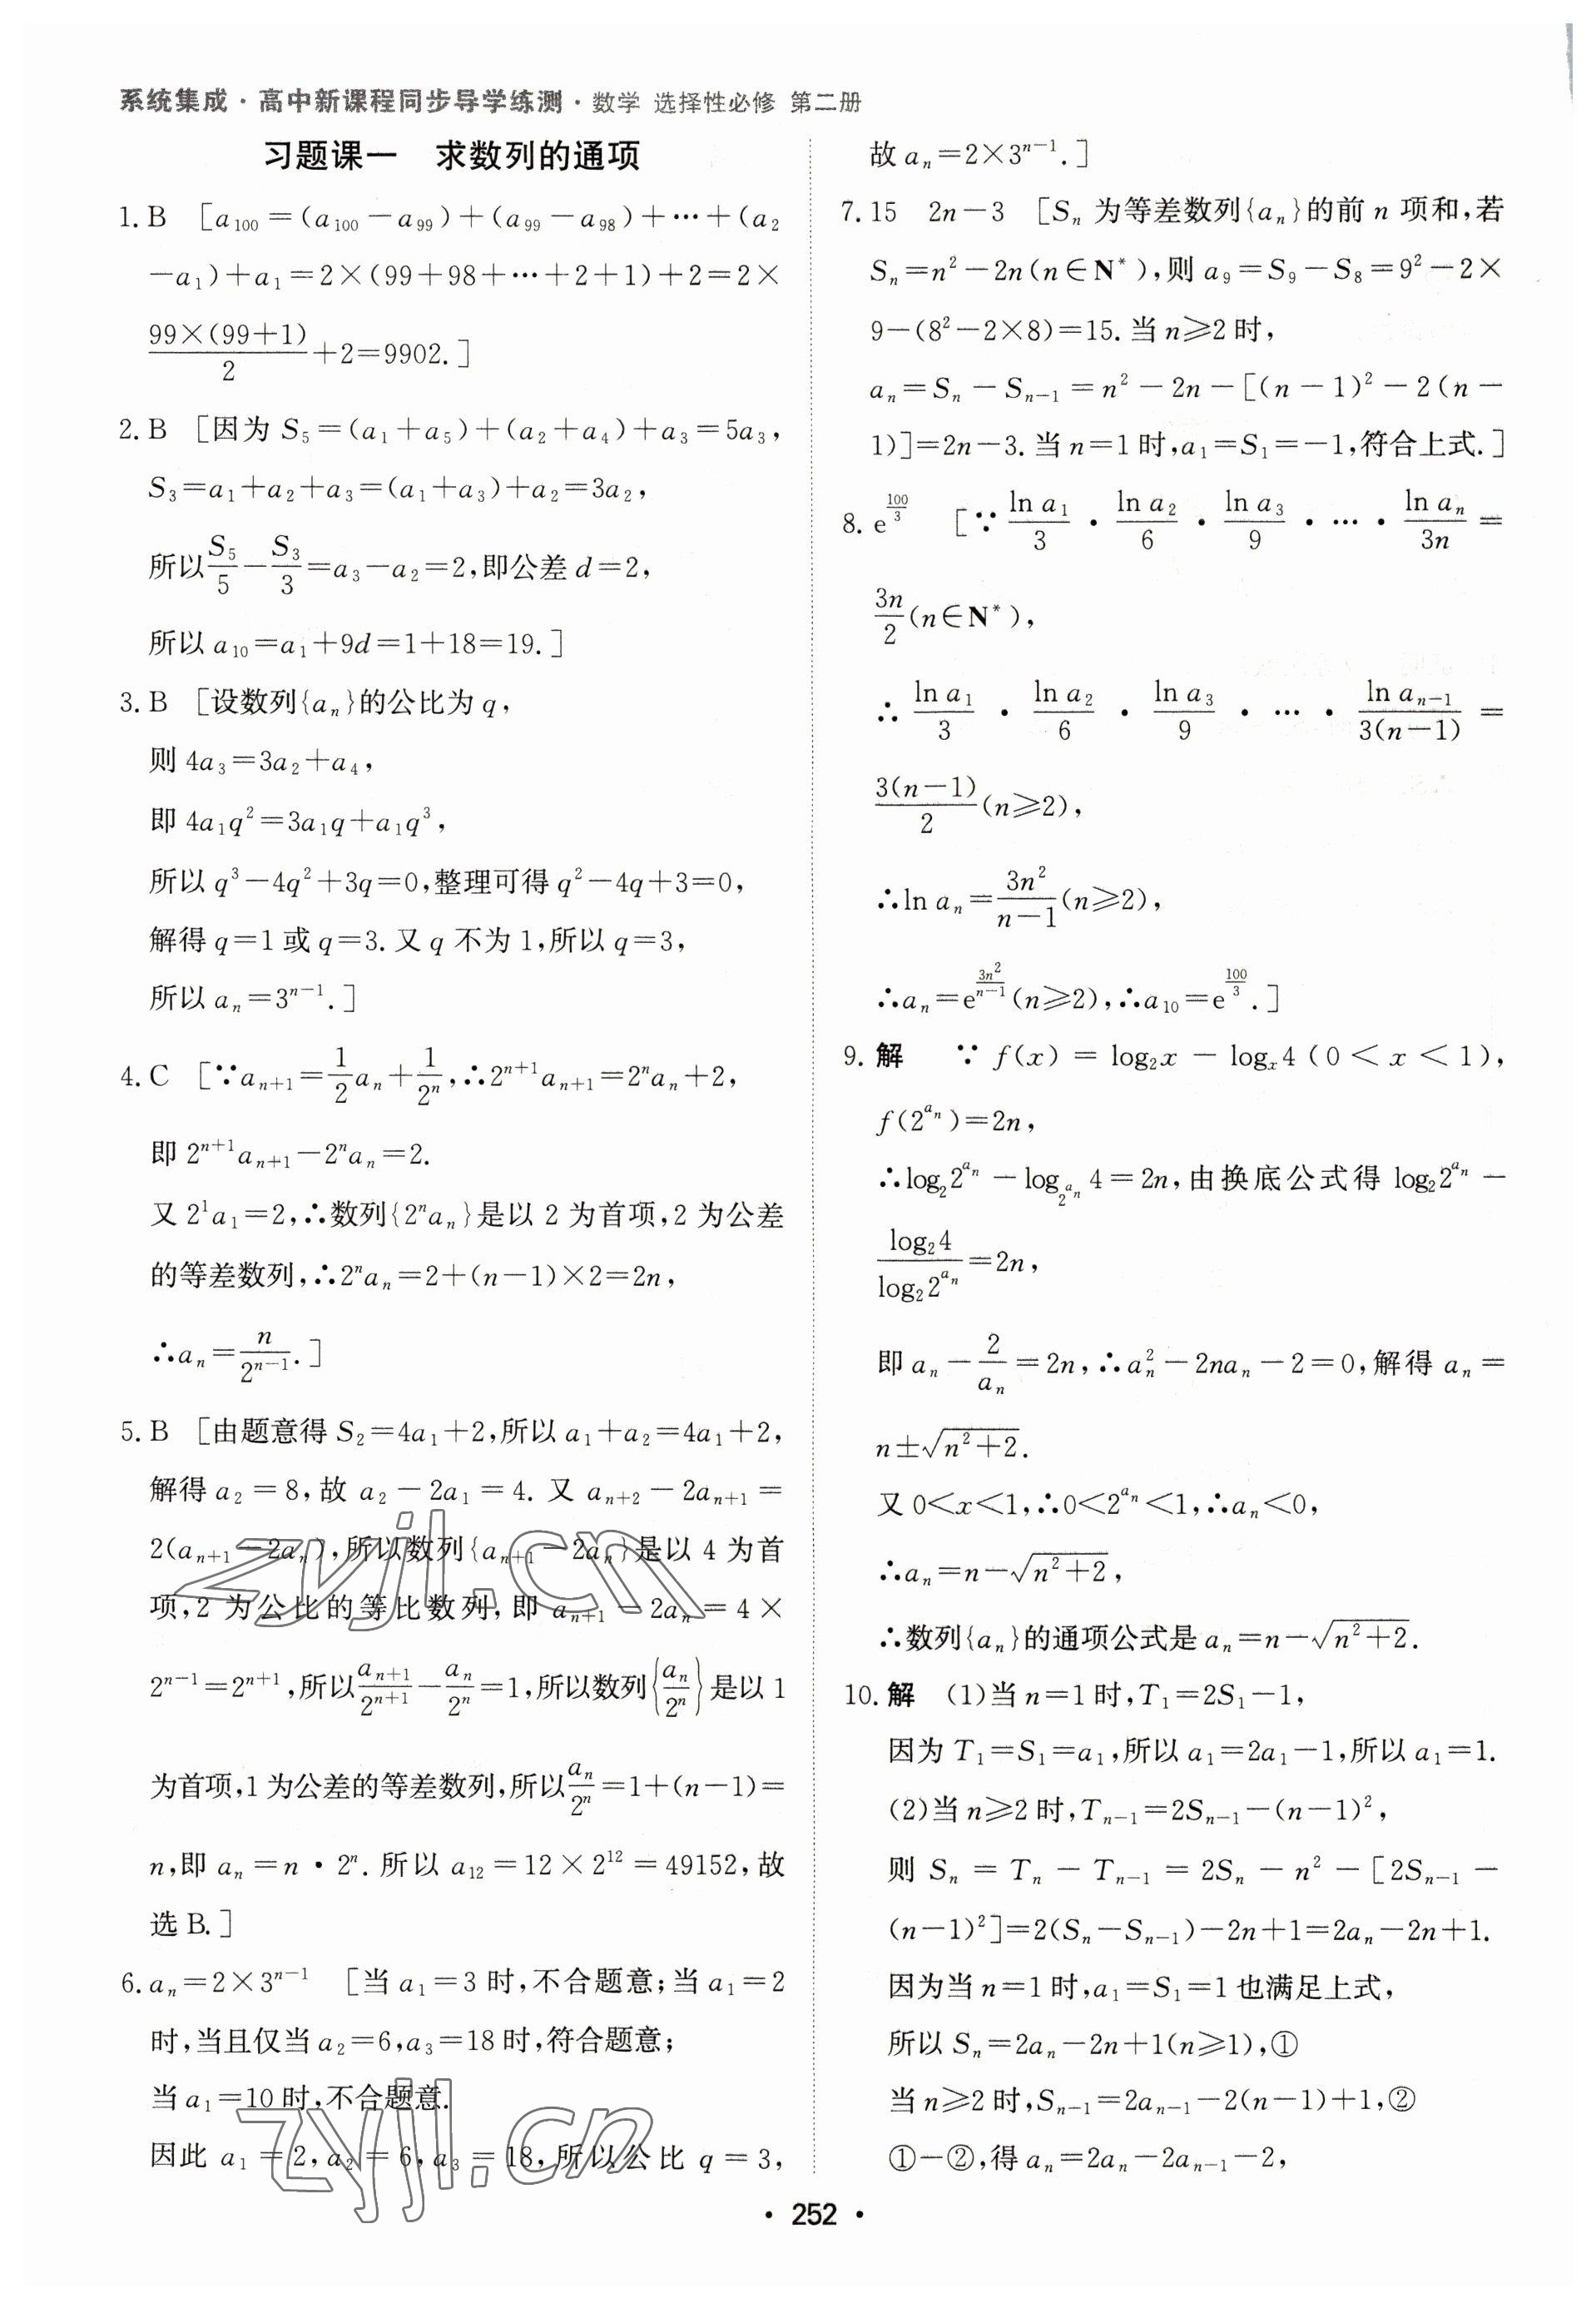 系统集成·高中新课程同步导学练测·数学 选择性必修 第二册
习题课一 求数列的通项
1.B [a₁₀₀=(a₁₀₀-a₉₉)+(a₉₉-a₉₈)+…+(a₂
-a₁)+a₁=2×(99+98+…+2+1)+2=2×
99×(99+1)/2+2=9902.]
2.B [因为 S₅=(a₁+a₅)+(a₂+a₄)+a₃=5a₃,
S₃=a₁+a₂+a₃=(a₁+a₃)+a₂=3a₂,
所以S₅/5-S₃/3=a₃-a₂=2,即公差 d=2,
所以 a₁₀=a₁+9d=1+18=19.]
3.B [设数列{aₙ}的公比为 q,
则 4a₃=3a₂+a₄,
即 4a₁q²=3a₁q+a₁q³,
所以 q³-4q²+3q=0,整理可得 q²-4q+3=0,
解得 q=1 或 q=3.又 q 不为 1,所以 q=3,
所以 aₙ=3ⁿ⁻¹.]
4.C [∵aₙ₊₁=1/2 aₙ+1/2ⁿ,∴2ⁿ⁺¹aₙ₊₁=2ⁿaₙ+2,
即 2ⁿ⁺¹aₙ₊₁-2ⁿaₙ=2.
又 2¹a₁=2,∴数列{2ⁿaₙ}是以 2 为首项,2 为公差
的等差数列,∴2ⁿaₙ=2+(n-1)×2=2n,
∴aₙ=n/2ⁿ⁻¹.]
5.B [由题意得 S₂=4a₁+2,所以 a₁+a₂=4a₁+2,
解得 a₂=8,故 a₂-2a₁=4.又 aₙ₊₂-2aₙ₊₁=
2(aₙ₊₁-2aₙ),所以数列{aₙ₊₁-2aₙ}是以 4 为首
项,2 为公比的等比数列,即 aₙ₊₁-2aₙ=4×
2ⁿ⁻¹=2ⁿ⁺¹,所以aₙ₊₁/2ⁿ⁺¹-aₙ/2ⁿ=1,所以数列{aₙ/2ⁿ}是以 1
为首项,1 为公差的等差数列,所以aₙ/2ⁿ=1+(n-1)=
n,即 aₙ=n·2ⁿ.所以 a₁₂=12×2¹²=49152,故
选 B.]
6.aₙ=2×3ⁿ⁻¹ [当 a₁=3 时,不合题意;当 a₁=2
时,当且仅当 a₂=6,a₃=18 时,符合题意;
当 a₁=10 时,不合题意.
因此 a₁=2,a₂=6,a₃=18,所以公比 q=3,
故 aₙ=2×3ⁿ⁻¹.]
7.15 2n-3 [Sₙ 为等差数列{aₙ}的前 n 项和,若
Sₙ=n²-2n(n∈N*),则 a₉=S₉-S₈=9²-2×
9-(8²-2×8)=15.当 n≥2 时,
aₙ=Sₙ-Sₙ₋₁=n²-2n-[(n-1)²-2(n-
1)]=2n-3.当 n=1 时,a₁=S₁=-1,符合上式.]
8.e^(100/3) [∵ln a₁/3·ln a₂/6·ln a₃/9·…·ln aₙ/3n=
3n/2(n∈N*),
∴ln a₁/3·ln a₂/6·ln a₃/9·…·ln aₙ₋₁/3(n-1)=
3(n-1)/2(n≥2),
∴ln aₙ=3n²/(n-1)(n≥2),
∴aₙ=e^(3n²/(n-1))(n≥2),∴a₁₀=e^(100/3).]
9.解 ∵f(x)=log₂x-logₓ4(0<x<1),
f(2^(aₙ))=2n,
∴log₂2^(aₙ)-log_(2^(aₙ))4=2n,由换底公式得 log₂2^(aₙ)-
log₂4/log₂2^(aₙ)=2n,
即 aₙ-2/aₙ=2n,∴aₙ²-2naₙ-2=0,解得 aₙ=
n±√(n²+2).
又 0<x<1,∴0<2^(aₙ)<1,∴aₙ<0,
∴aₙ=n-√(n²+2),
∴数列{aₙ}的通项公式是 aₙ=n-√(n²+2).
10.解 (1)当 n=1 时,T₁=2S₁-1,
因为 T₁=S₁=a₁,所以 a₁=2a₁-1,所以 a₁=1.
(2)当 n≥2 时,Tₙ₋₁=2Sₙ₋₁-(n-1)²,
则 Sₙ=Tₙ-Tₙ₋₁=2Sₙ-n²-[2Sₙ₋₁-
(n-1)²]=2(Sₙ-Sₙ₋₁)-2n+1=2aₙ-2n+1.
因为当 n=1 时,a₁=S₁=1 也满足上式,
所以 Sₙ=2aₙ-2n+1(n≥1),①
当 n≥2 时,Sₙ₋₁=2aₙ₋₁-2(n-1)+1,②
①-②,得 aₙ=2aₙ-2aₙ₋₁-2,
·252·
zyjl.cn
zyjl.cn